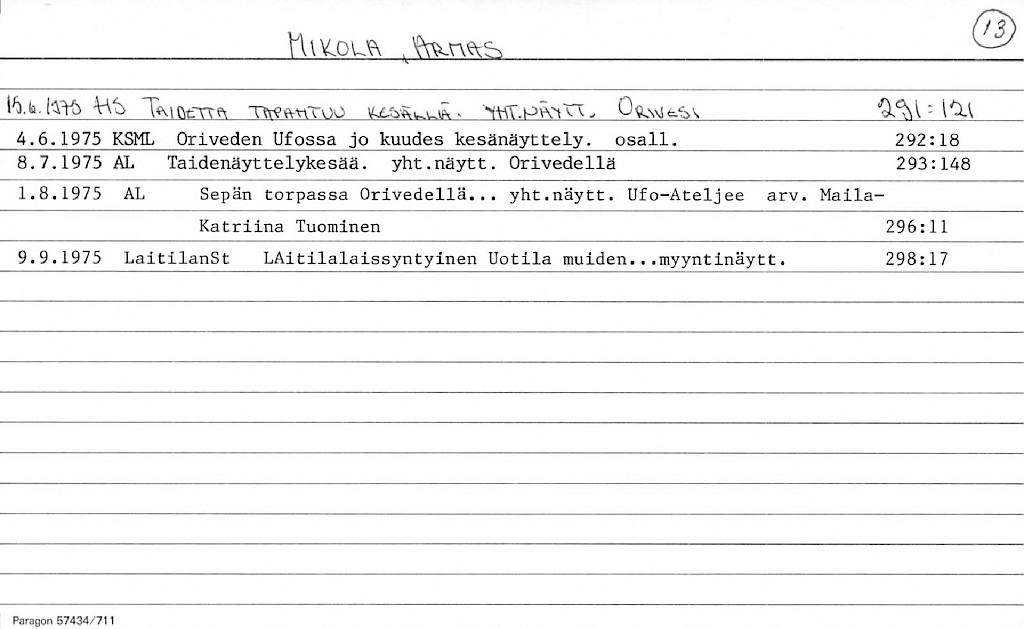 13
MIKOLA, ARMAS
15.6.1975 HS TAIDETTA TAPAHTUU KESÄLLÄ. YHT.NÄYTT. ORIVESI 291:121
4.6.1975 KSML Oriveden Ufossa jo kuudes kesänäyttely. osall. 292:18
8.7.1975 AL Taidenäyttelykesää. yht.näytt. Orivedellä 293:148
1.8.1975 AL Sepän torpassa Orivedellä... yht.näytt. Ufo-Ateljee arv. Maila-
Katriina Tuominen 296:11
9.9.1975 LaitilanSt LAitilalaissyntyinen Uotila muiden...myyntinäytt. 298:17
Paragon 57434/711